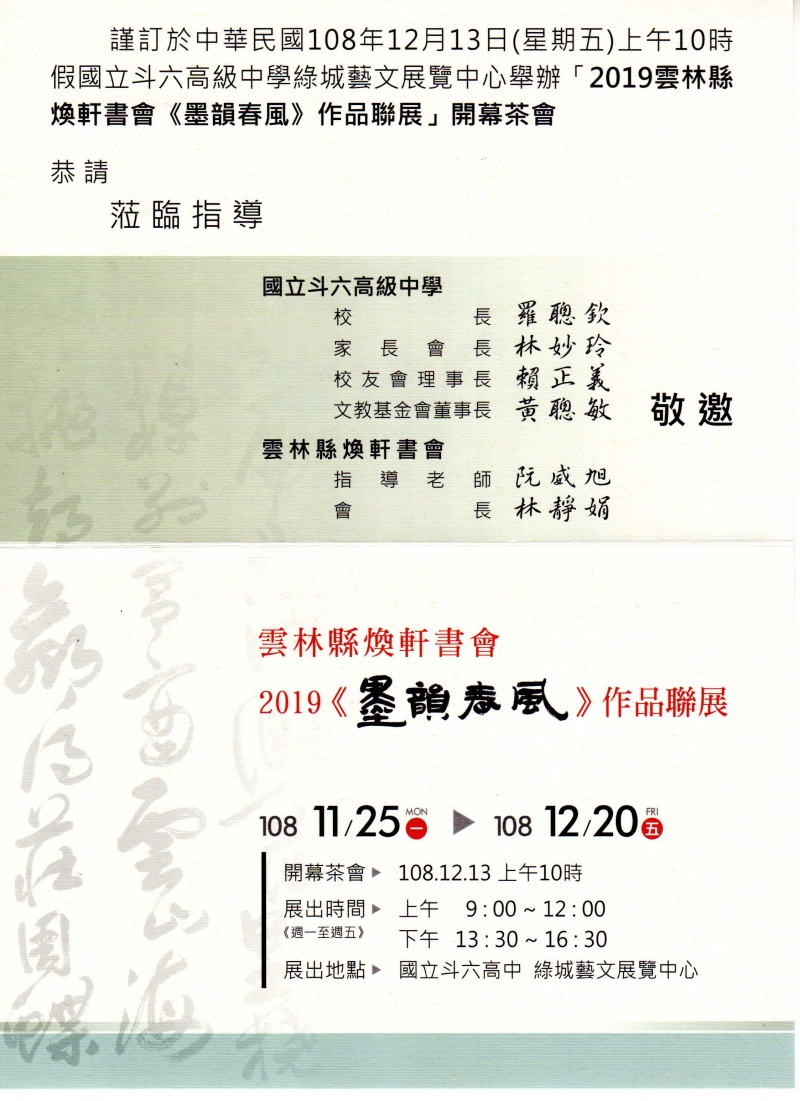 謹訂於中華民國108年12月13日(星期五)上午10時
假國立斗六高級中學綠城藝文展覽中心舉辦「2019雲林縣
煥軒書會《墨韻春風》作品聯展」開幕茶會
恭請
蒞臨指導
國立斗六高級中學
校長 羅聰欽
家長會長 林妙玲
校友會理事長 賴正義
文教基金會董事長 黃聰敏
敬邀
雲林縣煥軒書會
指導老師 阮威旭
會長 林靜娟
雲林縣煥軒書會
2019《墨韻春風》作品聯展
108 11/25 MON 一 ▶ 108 12/20 FRI 五
開幕茶會▶ 108.12.13 上午10時
展出時間▶ 上午 9:00 ~ 12:00
《週一至週五》 下午 13:30 ~ 16:30
展出地點▶ 國立斗六高中 綠城藝文展覽中心